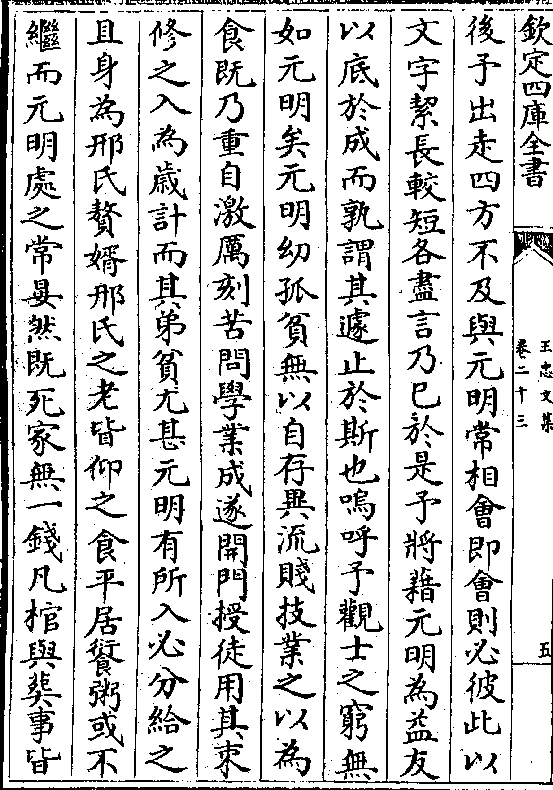 欽定四庫全書
王忠文集
卷二十三
五
後予出走四方不及與元明常相會即會則必彼此以
文字絜長較短各盡言乃已於是予將藉元明為益友
以底於成而孰謂其遽止於斯也嗚呼予觀士之窮無
如元明矣元明幼孤貧無以自存異流賤技業之以為
食既乃重自激厲刻苦問學業成遂開門授徒用其束
修之入為歳計而其弟貧尤甚元明有所入必分給之
且身為邢氏贅婿邢氏之老皆仰之食平居饘粥或不
繼而元明處之常晏然既死家無一錢凡棺與葬事皆